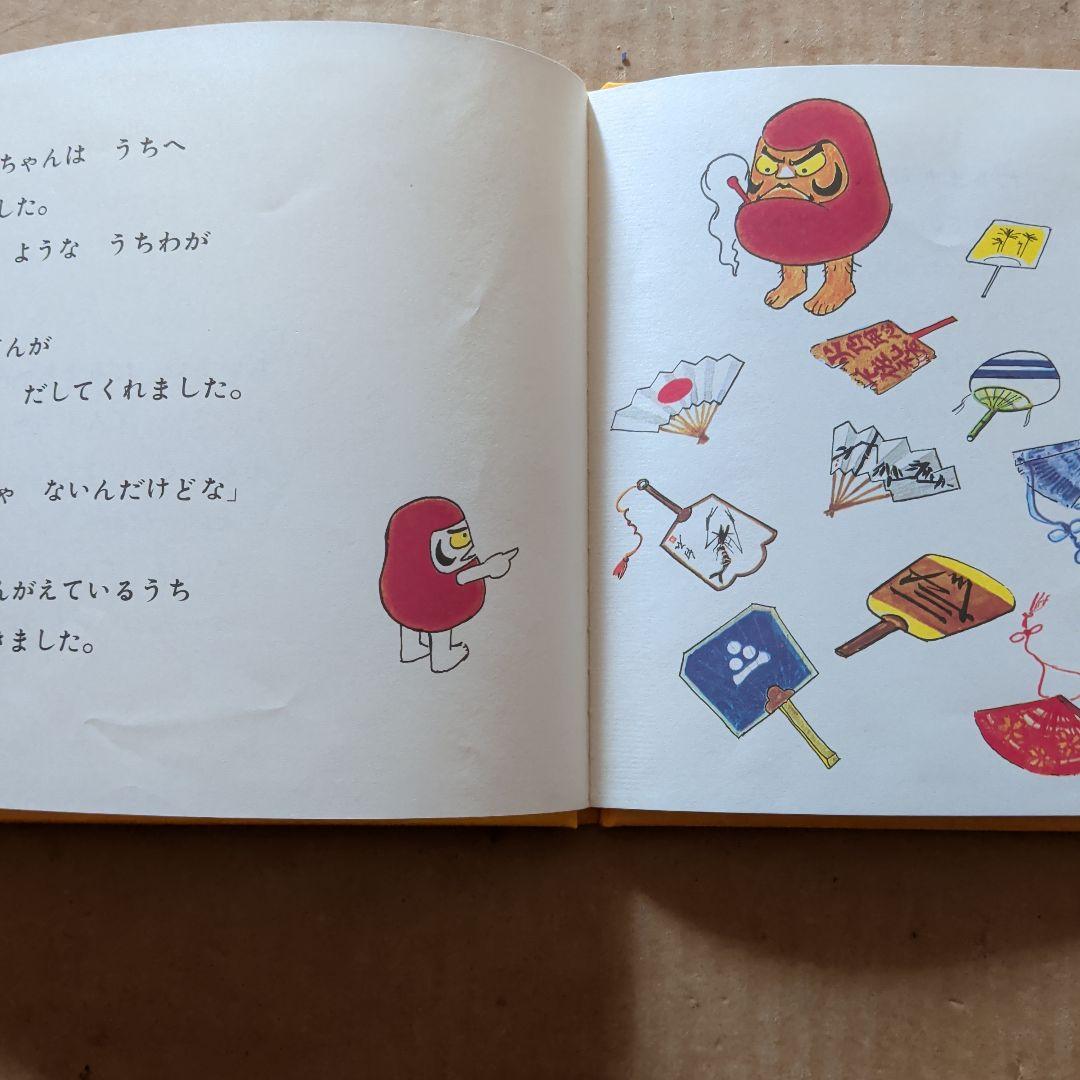 ちゃんは　うちへ
した。
ような　うちわが
んが
だしてくれました。
ゃ　ないんだけどな」
んがえているうち
きました。